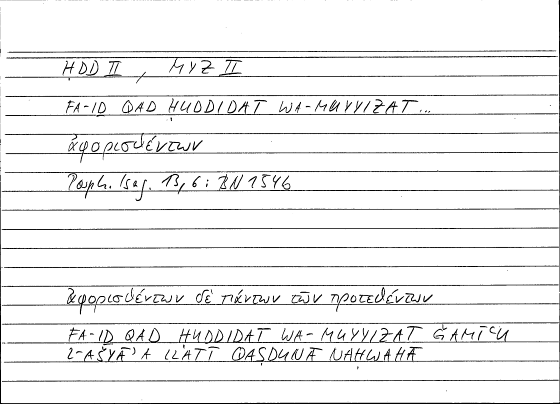 ḤDD II, MYZ II
FA-IḎ QAD ḤUDDIDAT WA-MUYYIZAT...
ἀφορισθέντων
Porph. Isag. 13, 6 : BN 1546
ἀφορισθέντων δὲ πάντων τῶν προτεθέντων
FA-IḎ QAD ḤUDDIDAT WA-MUYYIZAT ǦAMĪʿU
L-AŠYĀʾA LLATĪ QAṢDUNĀ NAḤWAHĀ